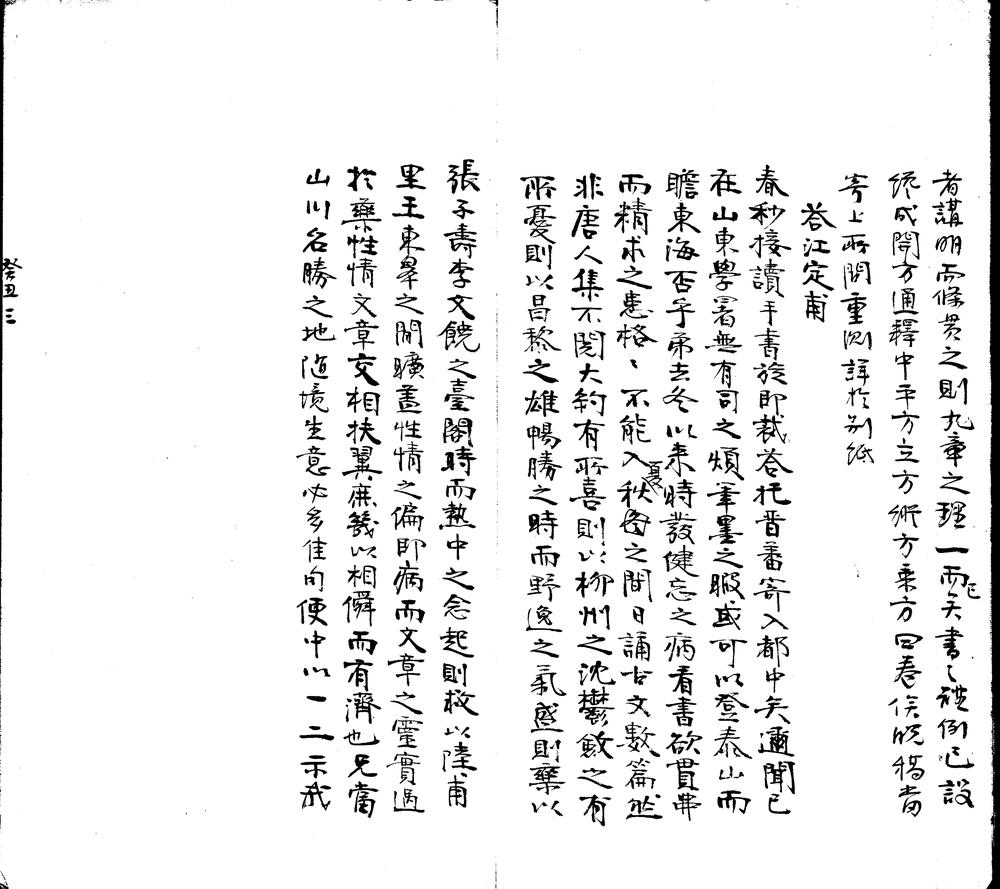 者講明而條貫之則九章之理一而已矣書之體例已設
總成開方通釋中平方立方術方乘方四卷俟脫稿當
寄上所問重測詳於別紙
答江定甫
春杪接讀手書旋即裁答托晋蕃寄入都中矣邇聞已
在山東學署無有司之煩筆墨之暇或可以登泰山而
瞻東海否乎弟去冬以來時發健忘之病看書欲貫串
而精求之患格格不能入夏秋之間日誦古文數篇然
非唐人集不閱大約有所喜則以柳州之沈鬱斂之有
所憂則以昌黎之雄暢勝之時而野逸之氣盛則藥以
張子壽李文饒之臺閣時而熱中之念起則救以陸甫
里王東皋之閒曠蓋性情之偏即病而文章之靈實過
於藥性情文章交相扶翼庶幾以相儕而有濟也兄當
山川名勝之地隨境生意必多佳句便中以一二示我
癸丑 三